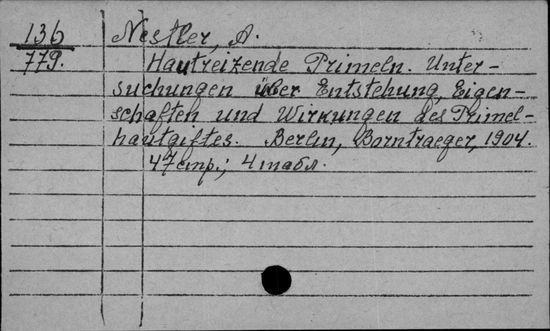 136
779.
Nestler, A.
Hautreizende Primeln. Unter-
suchungen über Entstehung, Eigen-
schaften und Wirkungen des Primel-
hautgiftes. Berlin, Borntraeger, 1904.
47 стр.; 4 табл.